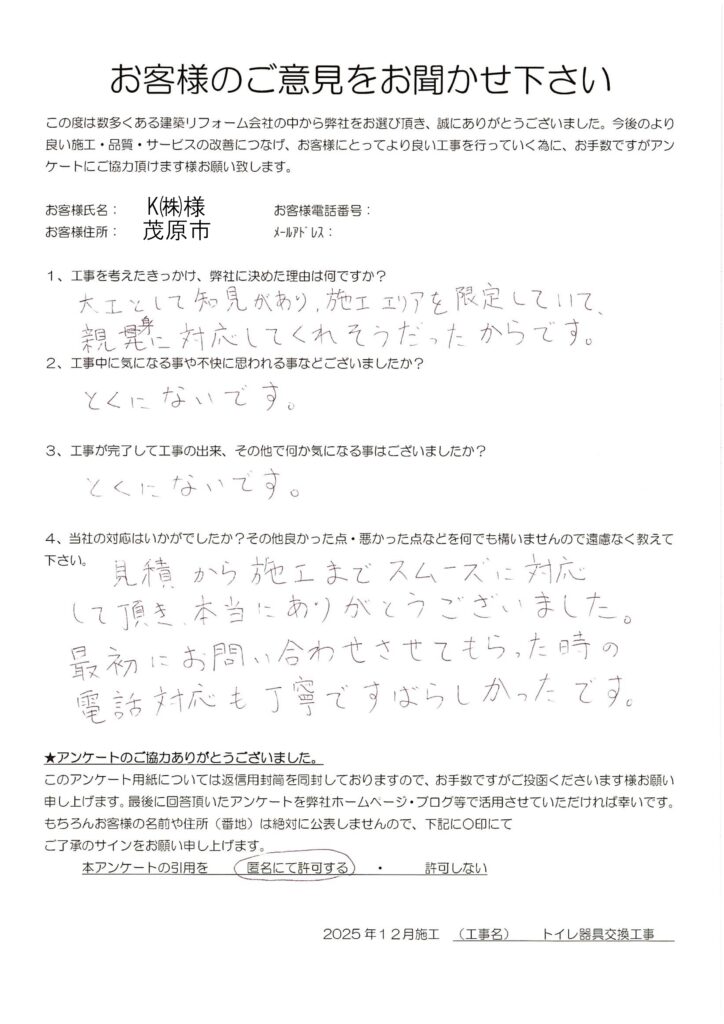 お客様のご意見をお聞かせ下さい
この度は数多くある建築リフォーム会社の中から弊社をお選び頂き、誠にありがとうございました。今後のより
良い施工・品質・サービスの改善につなげ、お客様にとってより良い工事を行っていく為に、お手数ですがアン
ケートにご協力頂けます様お願い致します。
お客様氏名： K㈱様 お客様電話番号：
お客様住所： 茂原市 ﾒｰﾙｱﾄﾞﾚｽ：
1、工事を考えたきっかけ、弊社に決めた理由は何ですか？
大工として知見があり、施工エリアを限定していて、
親身に対応してくれそうだったからです。
2、工事中に気になる事や不快に思われる事などございましたか？
とくにないです。
3、工事が完了して工事の出来、その他で何か気になる事はございましたか？
とくにないです。
4、当社の対応はいかがでしたか？その他良かった点・悪かった点などを何でも構いませんので遠慮なく教えて
下さい。
見積から施工までスムーズに対応
して頂き、本当にありがとうございました。
最初にお問い合わせさせてもらった時の
電話対応も丁寧ですばらしかったです。
★アンケートのご協力ありがとうございました。
このアンケート用紙については返信用封筒を同封しておりますので、お手数ですがご投函くださいます様お願い
申し上げます。最後に回答頂いたアンケートを弊社ホームページ・ブログ等で活用させていただければ幸いです。
もちろんお客様の名前や住所（番地）は絶対に公表しませんので、下記に〇印にて
ご了承のサインをお願い申し上げます。
本アンケートの引用を 匿名にて許可する ・ 許可しない
2025年12月施工 （工事名） トイレ器具交換工事